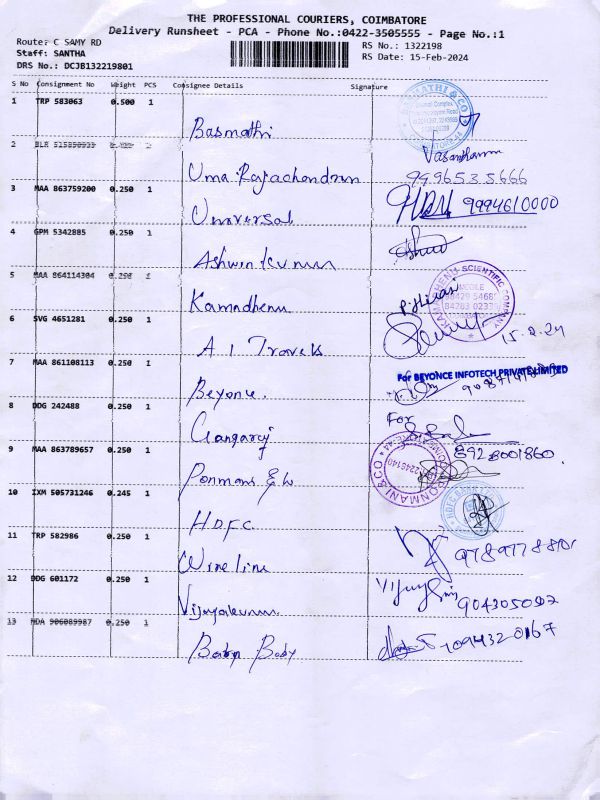 THE PROFESSIONAL COURIERS, COIMBATORE
Delivery Runsheet - PCA - Phone No.:0422-3505555 - Page No.:1
Route: C SAMY RD
RS No.: 1322198
Staff: SANTHA
RS Date: 15-Feb-2024
DRS No.: DCJB132219801
S No Consignment No Weight PCS Consignee Details Signature
1 TRP 583063 0.500 1
Basmathi
2
Vasanthamma
Uma Rajachandran 9496535666
3 MAA 863759200 0.250 1
Universal 9994610000
4 GPM 5342885 0.250 1
Ashwin kumar
5 MAA 864114304 0.250 1
Kamadhenu
KAMADHENU SCIENTIFIC COMPANY
6 SVG 4651281 0.250 1
A 1 Travels
15.2.24
7 MAA 861108113 0.250 1
For BEYONCE INFOTECH PRIVATE LIMITED
Beyonce.
8 DDG 242488 0.250 1
For
Gangaraj
9 MAA 863789657 0.250 1
8928001860.
PONMANI & CO
Ponmani & Co
10 IXM 505731246 0.245 1
HDFC
11 TRP 582986 0.250 1
Wireline
12 DDG 601172 0.250 1
Vijayakumar
13 MDA 906089987 0.250 1
Baby Body